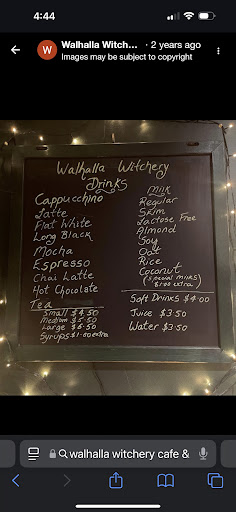 4:44
W
Walhalla Witch... · 2 years ago
Images may be subject to copyright
Walhalla Witchery
Drinks
Cappucchino
Latte
Flat White
Long Black
Mocha
Espresso
Chai Latte
Hot Chocolate
Tea
Small $4.50
Medium $5.50
Large $6.50
Syrups $1.00 extra
Milk
Regular
Skim
Lactose Free
Almond
Soy
Oat
Rice
Coconut
(special milks)
$1.00 extra
Soft Drinks $4.00
Juice $3.50
Water $3.50
walhalla witchery cafe &